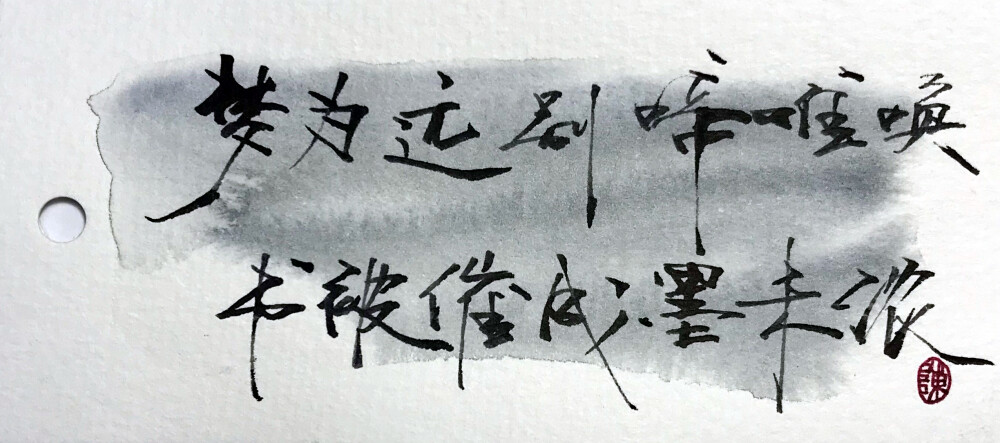 梦为远别啼唯唤
书被催成墨未浓
陳